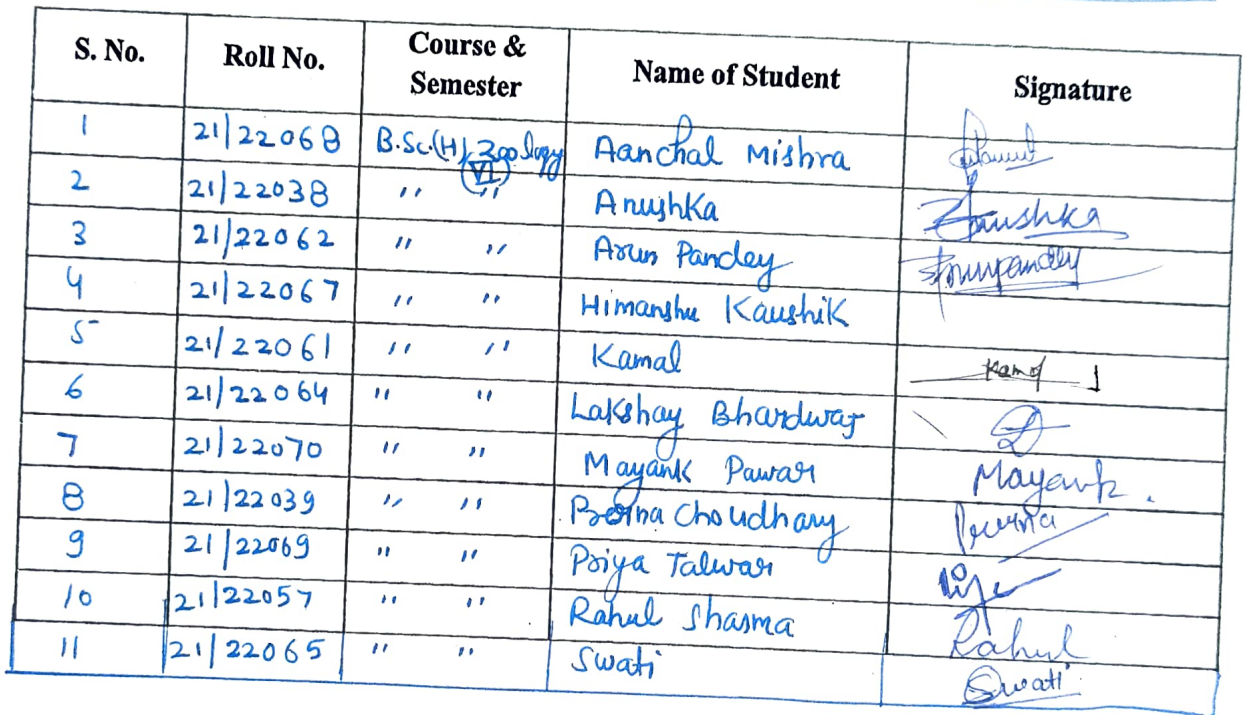 S. No. Roll No. Course & Semester Name of Student Signature
1 21/22068 B.Sc.(H) Zoology (VI) Aanchal Mishra
2 21/22038 " " Anushka Anushka
3 21/22062 " " Arun Pandey Arunpandey
4 21/22067 " " Himanshu Kaushik
5 21/22061 " " Kamal Kamal
6 21/22064 " " Lakshay Bhardwaj
7 21/22070 " " Mayank Pawar Mayank.
8 21/22039 " " Prerna Choudhary Prerna
9 21/22069 " " Priya Talwar
10 21/22057 " " Rahul Sharma Rahul
11 21/22065 " " Swati Swati